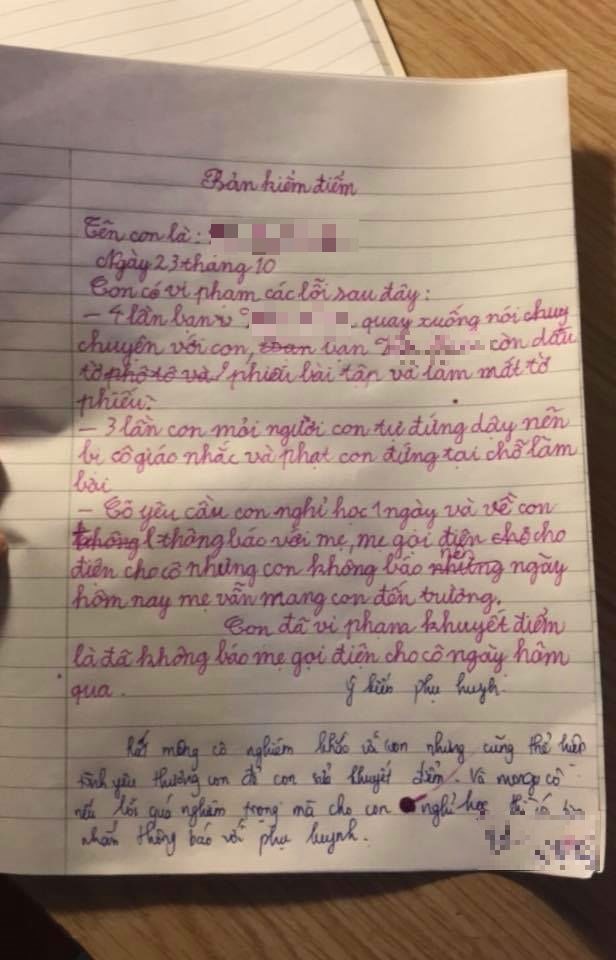 Bản kiểm điểm
Tên con là:
Ngày 23 tháng 10
Con có vi phạm các lỗi sau đây:
- 4 lần bạn quay xuống nói chuy
chuyện với con, toan bạn còn dấu
tờ phô tô và phiếu bài tập và làm mất tờ
phiếu.
- 3 lần con mỏi người con tự đứng dậy nên
bị cô giáo nhắc và phạt con đứng tại chỗ làm
bài
- Cô yêu cầu con nghỉ học 1 ngày và về con
không thông báo với mẹ, mẹ gọi điện chô cho
điện cho cô nhưng con không báo những nên ngày
hôm nay mẹ vẫn mang con đến trường.
Con đã vi phạm khuyết điểm
là đã không báo mẹ gọi điện cho cô ngày hôm
qua.
Ý kiến phụ huynh.
Rất mong cô nghiêm khắc với con nhưng cũng thể hiện
tình yêu thương con để con sửa khuyết điểm. Và mong cô
nếu lỗi quá nghiêm trọng mà cho con nghỉ học thì có
nhắn thông báo với phụ huynh.